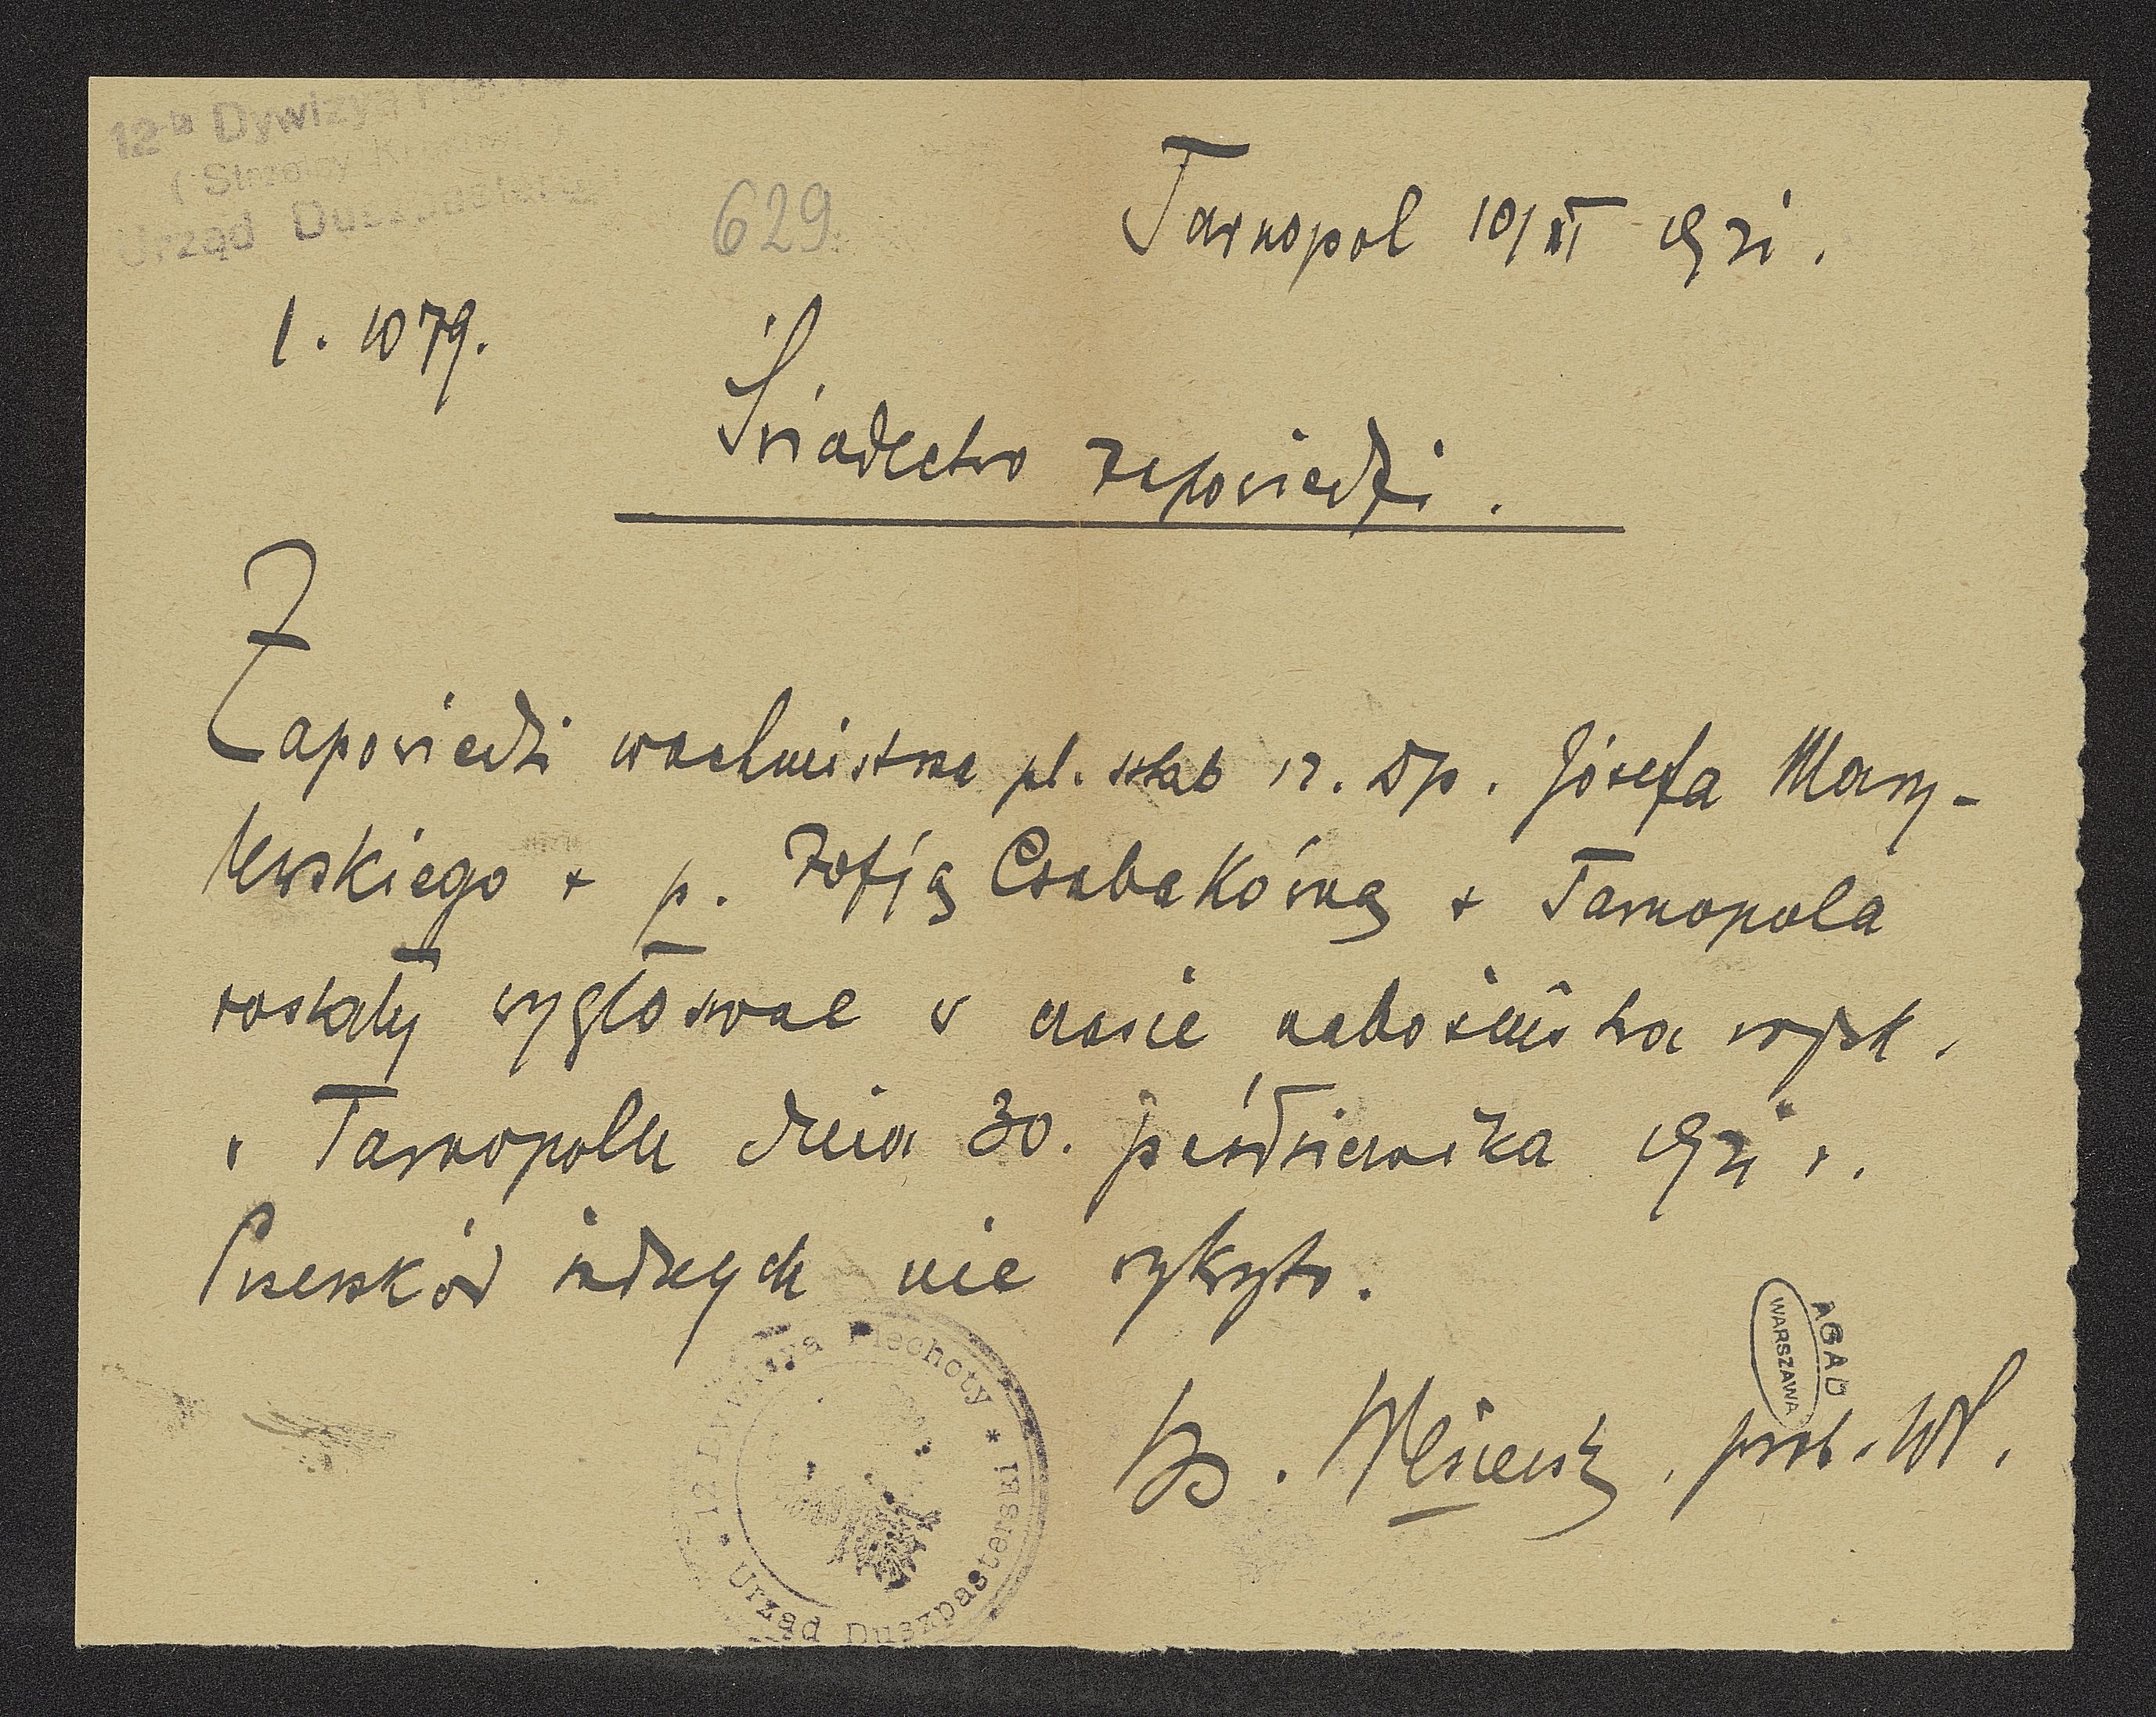 12-ta Dywizya
Urząd Duszpasterski
629
Tarnopol 10/XI 1921.
l. 1079.
Świadectwo zapowiedzi.
Zapowiedzi wachmistrza pl. sztab 12. Dp. Józefa Mary-
lewskiego z p. Zofją Czabakówną z Tarnopola
zostały wygłoszone w czasie nabożeństwa wojsk.
w Tarnopolu dnia 30. października 1921 r.
Przeszkód żadnych nie wykryto.
AGAD
WARSZAWA
12 Dywizya Piechoty * Urząd Duszpasterski *
Ks. prob. WP.